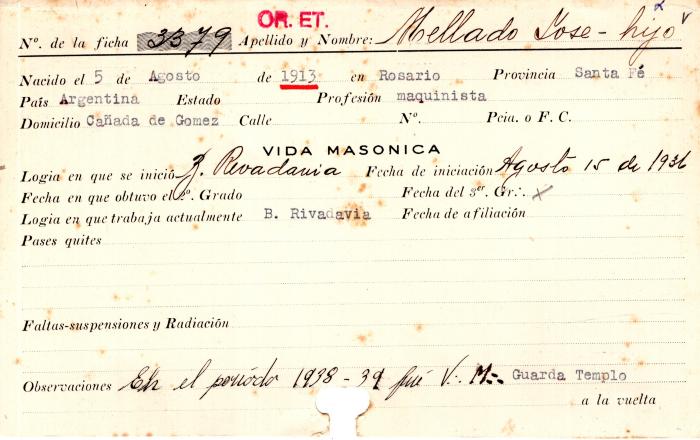 OR. ET.
Nº. de la ficha 3379 Apellido y Nombre: Mellado Jose - hijo
Nacido el 5 de Agosto de 1913 en Rosario Provincia Santa Fé
País Argentina Estado Profesión maquinista
Domicilio Cañada de Gomez Calle Nº. Pcia. o F. C.
VIDA MASONICA
Logia en que se inició Rivadavia Fecha de iniciación Agosto 15 de 1936
Fecha en que obtuvo el 2º. Grado Fecha del 3er. Gr∴
Logia en que trabaja actualmente B. Rivadavia Fecha de afiliación
Pases quites
Faltas-suspensiones y Radiación
Observaciones En el periódo 1938 - 39 fué V∴ M∴ Guarda Templo
a la vuelta